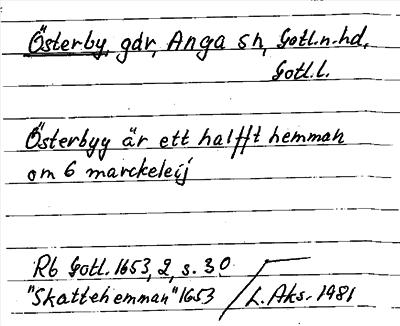 Österby, gdr, Anga sn, Gotl.n.hd,
Gotl.l.
Österbyy är ett halfft hemman
om 6 marckeleij
Rb Gotl. 1653, 2, s. 30
"Skattehemman" 1653 / L. Aks. 1981